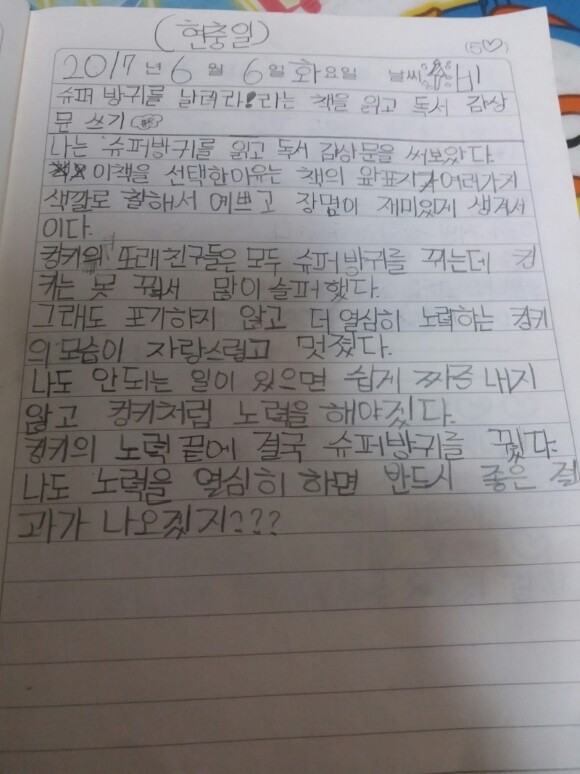 (현충일)
(5♡)
2017년 6월 6일 화요일 날씨 비
슈퍼 방귀를 날려라!라는 책을 읽고 독서 감상
문 쓰기
나는 슈퍼방귀를 읽고 독서 감상문을 써보았다.
이책을 선택한이유는 책의 앞표지가여러가지
색깔로 칠해서 예쁘고 장면이 재미있게 생겨서
이다.
킹키의 또래친구들은 모두 슈퍼방귀를 뀌는데 킹
키는 못 뀌서 많이슬퍼했다.
그래도 포기하지 않고 더 열심히 노력하는 킹키
의모습이 자랑스럽고 멋졌다.
나도 안되는 일이 있으면 쉽게 짜증내지
않고 킹키처럼 노력을 해야짓다.
킹키의 노력끝에 결국 슈퍼방귀를 뀄다.
나도 노력을 열심히 하면 반드시 좋은 결
과가 나오겠지???